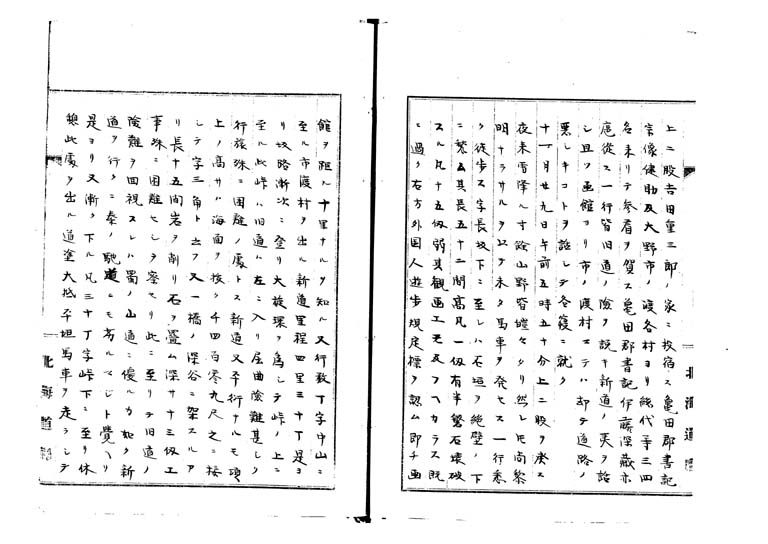 上二股吉田重三郎ノ家ニ投宿ス亀田郡書記
宗像健助及大野市ノ渡各村ヨリ総代等三四
名来リテ参着ヲ賀ス亀田郡書記伊藤深蔵亦
扈従ス一行皆旧道ノ険ヲ説キ新道ノ美ヲ話
シ且ツ函館ヨリ市ノ渡村マテハ却テ道路ノ
悪シキコトヲ話シテ各寝ニ就ク
十一月廿九日午前五時五十分上二股ヲ発ス
夜来雪降ル寸余山野皆皚々タリ然レ𪜈尚黎
明ナラサルヲ以テ未タ馬車ヲ発セス一行悉
ク徒歩ス字長坂下ニ至レハ石垣ヲ絶壁ノ下
ニ築ク其長五十二間高凡一仭有半磐石壊破
スル凡十五仭弱其観画工モ及フヘカラス既
ニ過ク右方外国人遊歩規定標ヲ認ム即チ函
館ヲ距ル十里ナルヲ知ル又行数丁字中山ニ
至ル市渡村ヲ出ル新道里程四里三十丁是ヨ
リ坂路漸次ニ登リ大旋環ヲ為シテ峠ノ上ニ
至ル此峠ハ旧道ハ左ニ入リ屈曲険難甚シク
行旅殊ニ困難ノ處トス新道又平行ナルモ頂
上ノ高サハ海面ヲ抜ク千四百零九尺之ニ接
シテ字三角ト云フ又一橋ノ深谷ニ架スルア
リ長十五間岩ヲ削リ石ヲ畳ム深サ十三仭工
事殊ニ困難セシヲ察セリ此ニ至リテ旧道ノ
険難ヲ回視スレハ蜀ノ山道ニ優ルカ如ク新
道ヲ行クニ秦ノ馳道ニモ劣ルマシト賛ヘリ
是ヨリ又漸ク下ル凡三十丁字峠下ニ至リ休
憩此處ヲ出ル道塗大抵平坦馬車ヲ走ラシテ
北海道廳
北海道廳